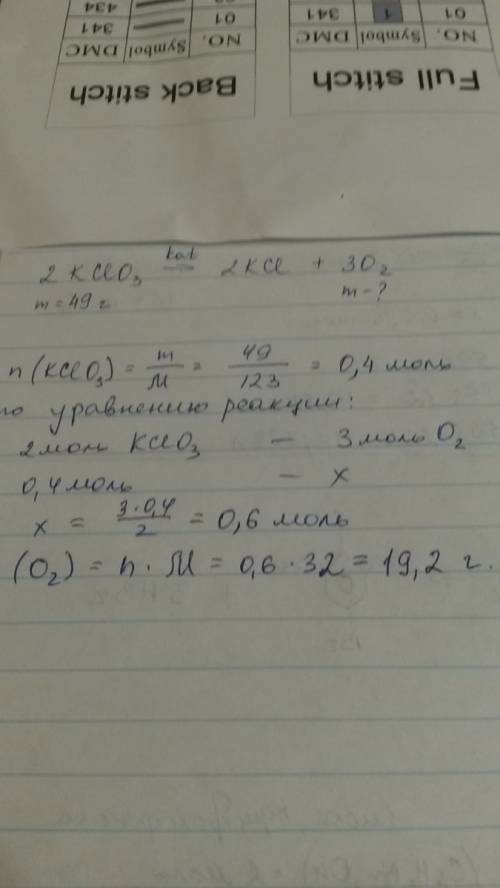 Full stitch
NO. Symbol DMC
01 1 341
Back stitch
NO. Symbol DMC
01 341
434
2 KClO₃ kat = 2KCl + 3O₂
m = 49 г m - ?
n (KClO₃) = m/M = 49/123 = 0,4 моль
по уравнению реакции:
2 моль KClO₃ — 3 моль O₂
0,4 моль — x
x = 3·0,4/2 = 0,6 моль
(O₂) = n · M = 0,6 · 32 = 19,2 г.